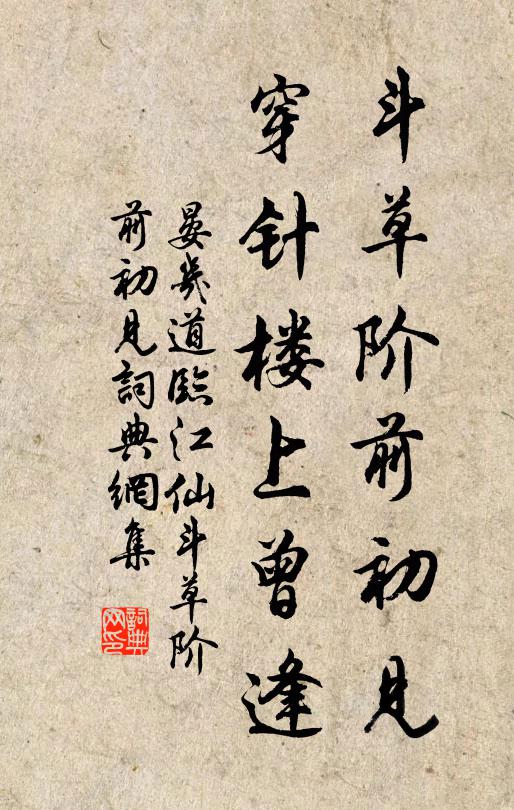 斗草阶前初见
穿针楼上曾逢
晏幾道臨江仙斗草阶
前初見詞典網集
詞典
网印